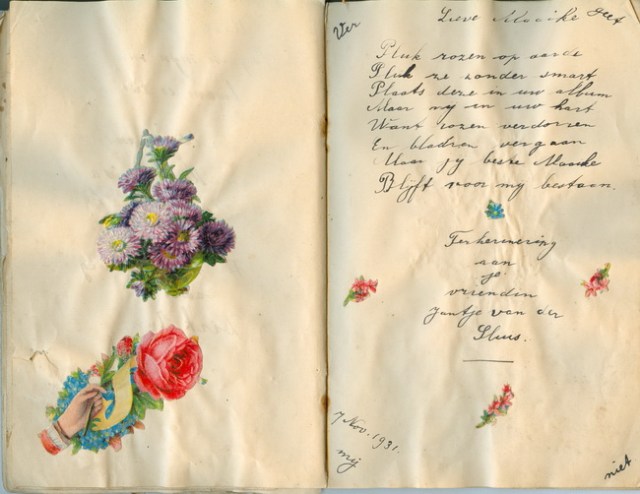 Ver
Lieve Maaike
geet
Pluk rozen op aarde
Pluk ze zonder smart
Plaats deze in uw album
Maar my in uw hart
Want rozen verdorren
En bladren vergaan
Maar jy beste Maaike
Blyft voor my bestaan.
Ter herinnering
aan
je
vriendin
Jantje van der
Sluis.
7 Nov. 1931.
mij
niet